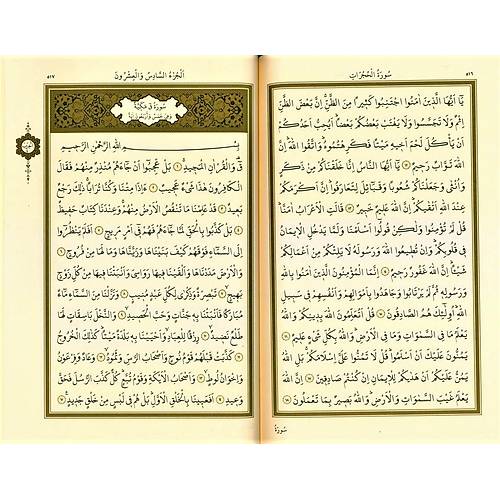 سُورَةُ الْحُجُرَاتِ ٥١٦
يَٓا اَيُّهَا الَّذ۪ينَ اٰمَنُوا اجْتَنِبُوا كَث۪يرًا مِنَ الظَّنِّ اِنَّ بَعْضَ الظَّنِّ
اِثْمٌ وَلَا تَجَسَّسُوا وَلَا يَغْتَبْ بَعْضُكُمْ بَعْضًا اَيُحِبُّ اَحَدُكُمْ
اَنْ يَأْكُلَ لَحْمَ اَخ۪يهِ مَيْتًا فَكَرِهْتُمُوهُ وَاتَّقُوا اللّٰهَ اِنَّ
اللّٰهَ تَوَّابٌ رَح۪يمٌ يَٓا اَيُّهَا النَّاسُ اِنَّا خَلَقْنَاكُمْ مِنْ ذَكَرٍ
وَاُنْثٰى وَجَعَلْنَاكُمْ شُعُوبًا وَقَبَٓائِلَ لِتَعَارَفُوا اِنَّ اَكْرَمَكُمْ
عِنْدَ اللّٰهِ اَتْقٰيكُمْ اِنَّ اللّٰهَ عَل۪يمٌ خَب۪يرٌ قَالَتِ الْاَعْرَابُ اٰمَنَّا
قُلْ لَمْ تُؤْمِنُوا وَلٰكِنْ قُولُٓوا اَسْلَمْنَا وَلَمَّا يَدْخُلِ الْا۪يمَانُ
ف۪ي قُلُوبِكُمْ وَاِنْ تُط۪يعُوا اللّٰهَ وَرَسُولَهُ لَا يَلِتْكُمْ مِنْ اَعْمَالِكُمْ
شَيْـًٔا اِنَّ اللّٰهَ غَفُورٌ رَح۪يمٌ اِنَّمَا الْمُؤْمِنُونَ الَّذ۪ينَ اٰمَنُوا بِاللّٰهِ
وَرَسُولِه۪ ثُمَّ لَمْ يَرْتَابُوا وَجَاهَدُوا بِاَمْوَالِهِمْ وَاَنْفُسِهِمْ ف۪ي سَب۪يلِ
اللّٰهِ اُو۬لٰٓئِكَ هُمُ الصَّادِقُونَ قُلْ اَتُعَلِّمُونَ اللّٰهَ بِد۪ينِكُمْ وَاللّٰهُ
يَعْلَمُ مَا فِي السَّمٰوَاتِ وَمَا فِي الْاَرْضِ وَاللّٰهُ بِكُلِّ شَيْءٍ عَل۪يمٌ
يَمُنُّونَ عَلَيْكَ اَنْ اَسْلَمُوا قُلْ لَا تَمُنُّوا عَلَيَّ اِسْلَامَكُمْ بَلِ اللّٰهُ
يَمُنُّ عَلَيْكُمْ اَنْ هَدٰيكُمْ لِلْا۪يمَانِ اِنْ كُنْتُمْ صَادِق۪ينَ اِنَّ اللّٰهَ
يَعْلَمُ غَيْبَ السَّمٰوَاتِ وَالْاَرْضِ وَاللّٰهُ بَص۪يرٌ بِمَا تَعْمَلُونَ
سُورَةُ
اَلْجُزْءُ السَّادِسُ وَالْعِشْرُونَ ٥١٧
سُورَةُ قٓ مَكِّيَّةٌ
وَهِيَ خَمْسٌ وَاَرْبَعُونَ اٰيَةً
بِسْــــمِ اللّٰهِ الرَّحْمٰنِ الرَّح۪يمِ
قٓ وَالْقُرْاٰنِ الْمَج۪يدِ بَلْ عَجِبُٓوا اَنْ جَٓاءَهُمْ مُنْذِرٌ مِنْهُمْ فَقَالَ
الْكَافِرُونَ هٰذَا شَيْءٌ عَج۪يبٌ ءَاِذَا مِتْنَا وَكُنَّا تُرَابًا ذٰلِكَ رَجْعٌ
بَع۪يدٌ قَدْ عَلِمْنَا مَا تَنْقُصُ الْاَرْضُ مِنْهُمْ وَعِنْدَنَا كِتَابٌ حَف۪يظٌ
بَلْ كَذَّبُوا بِالْحَقِّ لَمَّا جَٓاءَهُمْ فَهُمْ ف۪ٓي اَمْرٍ مَر۪يجٍ اَفَلَمْ يَنْظُرُٓوا
اِلَى السَّمَٓاءِ فَوْقَهُمْ كَيْفَ بَنَيْنَاهَا وَزَيَّنَّاهَا وَمَا لَهَا مِنْ فُرُوجٍ
وَالْاَرْضَ مَدَدْنَاهَا وَاَلْقَيْنَا ف۪يهَا رَوَاسِيَ وَاَنْبَتْنَا ف۪يهَا مِنْ كُلِّ زَوْجٍ
بَه۪يجٍ تَبْصِرَةً وَذِكْرٰى لِكُلِّ عَبْدٍ مُن۪يبٍ وَنَزَّلْنَا مِنَ السَّمَٓاءِ مَٓاءً
مُبَارَكًا فَاَنْبَتْنَا بِه۪ جَنَّاتٍ وَحَبَّ الْحَص۪يدِ وَالنَّخْلَ بَاسِقَاتٍ لَهَا
طَلْعٌ نَض۪يدٌ رِزْقًا لِلْعِبَادِ وَاَحْيَيْنَا بِه۪ بَلْدَةً مَيْتًا كَذٰلِكَ الْخُرُوجُ
كَذَّبَتْ قَبْلَهُمْ قَوْمُ نُوحٍ وَاَصْحَابُ الرَّسِّ وَثَمُودُ وَعَادٌ وَفِرْعَوْنُ
وَاِخْوَانُ لُوطٍ وَاَصْحَابُ الْاَيْكَةِ وَقَوْمُ تُبَّعٍ كُلٌّ كَذَّبَ الرُّسُلَ فَحَقَّ
وَع۪يدِ اَفَعَي۪ينَا بِالْخَلْقِ الْاَوَّلِ بَلْ هُمْ ف۪ي لَبْسٍ مِنْ خَلْقٍ جَد۪يدٍ